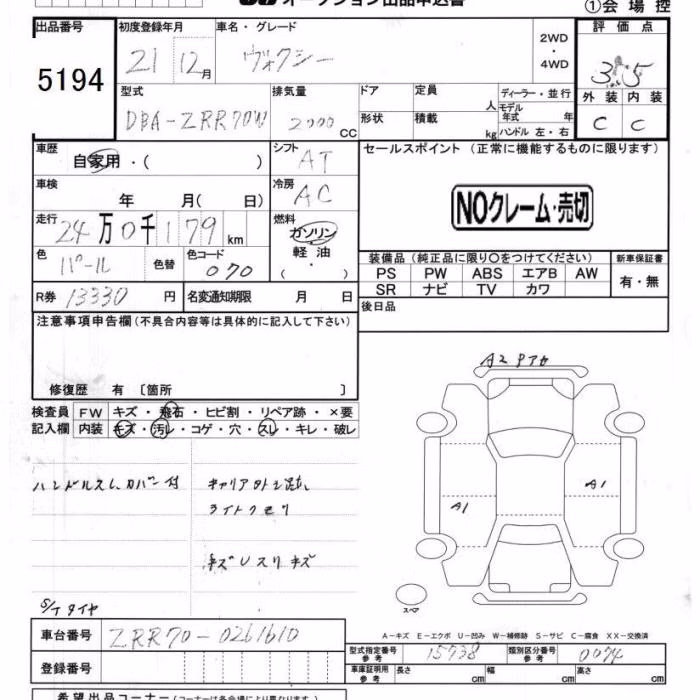 オークション出品申込書
①会場控
出品番号
5194
初度登録年月
21 12月
車名・グレード
ヴォクシー
2WD
・
4WD
評価点
3.5
外装 内装
C C
型式
DBA-ZRR70W
排気量
2000 CC
ドア
定員
人
形状
積載
kg
ディーラー・並行
モデル年式 年
ハンドル 左・右
車歴
自家用・( )
シフト
AT
車検
年 月( 日)
冷房
AC
走行
24万0千179km
燃料
ガソリン
軽油
・
( )
色
パール
色替
色コード
070
R券 13330 円
名変通知期限 月 日
セールスポイント (正常に機能するものに限ります)
NOクレーム・売切
装備品(純正品に限り○をつけてください)
PS PW ABS エアB AW
SR ナビ TV カワ
新車保証書
有・無
後日品
注意事項申告欄(不具合内容等は具体的に記入して下さい)
修復歴 有〔箇所 〕
検査員 FW キズ・飛石・ヒビ割・リペア跡・×要
記入欄 内装 キズ・汚レ・コゲ・穴・スレ・キレ・破レ
ハンドルスレ、カバー付
ライトクモリ
キズ
S/Tタイヤ
A2
A1
A1
スペア
A-キズ E-エクボ U-凹み W-補修跡 S-サビ C-腐食 XX-交換済
車台番号 ZRR70-0261610
型式指定番号 参考 15738
類別区分番号 参考 0074
登録番号
車庫証明用 参考 長さ cm 幅 cm 高さ cm
希望出品コーナー(コーナーは各会場により異なります)